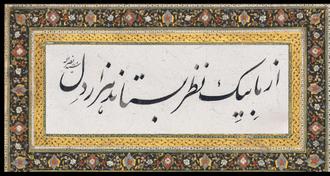 از ما بیک نظر بستاند هزار دل